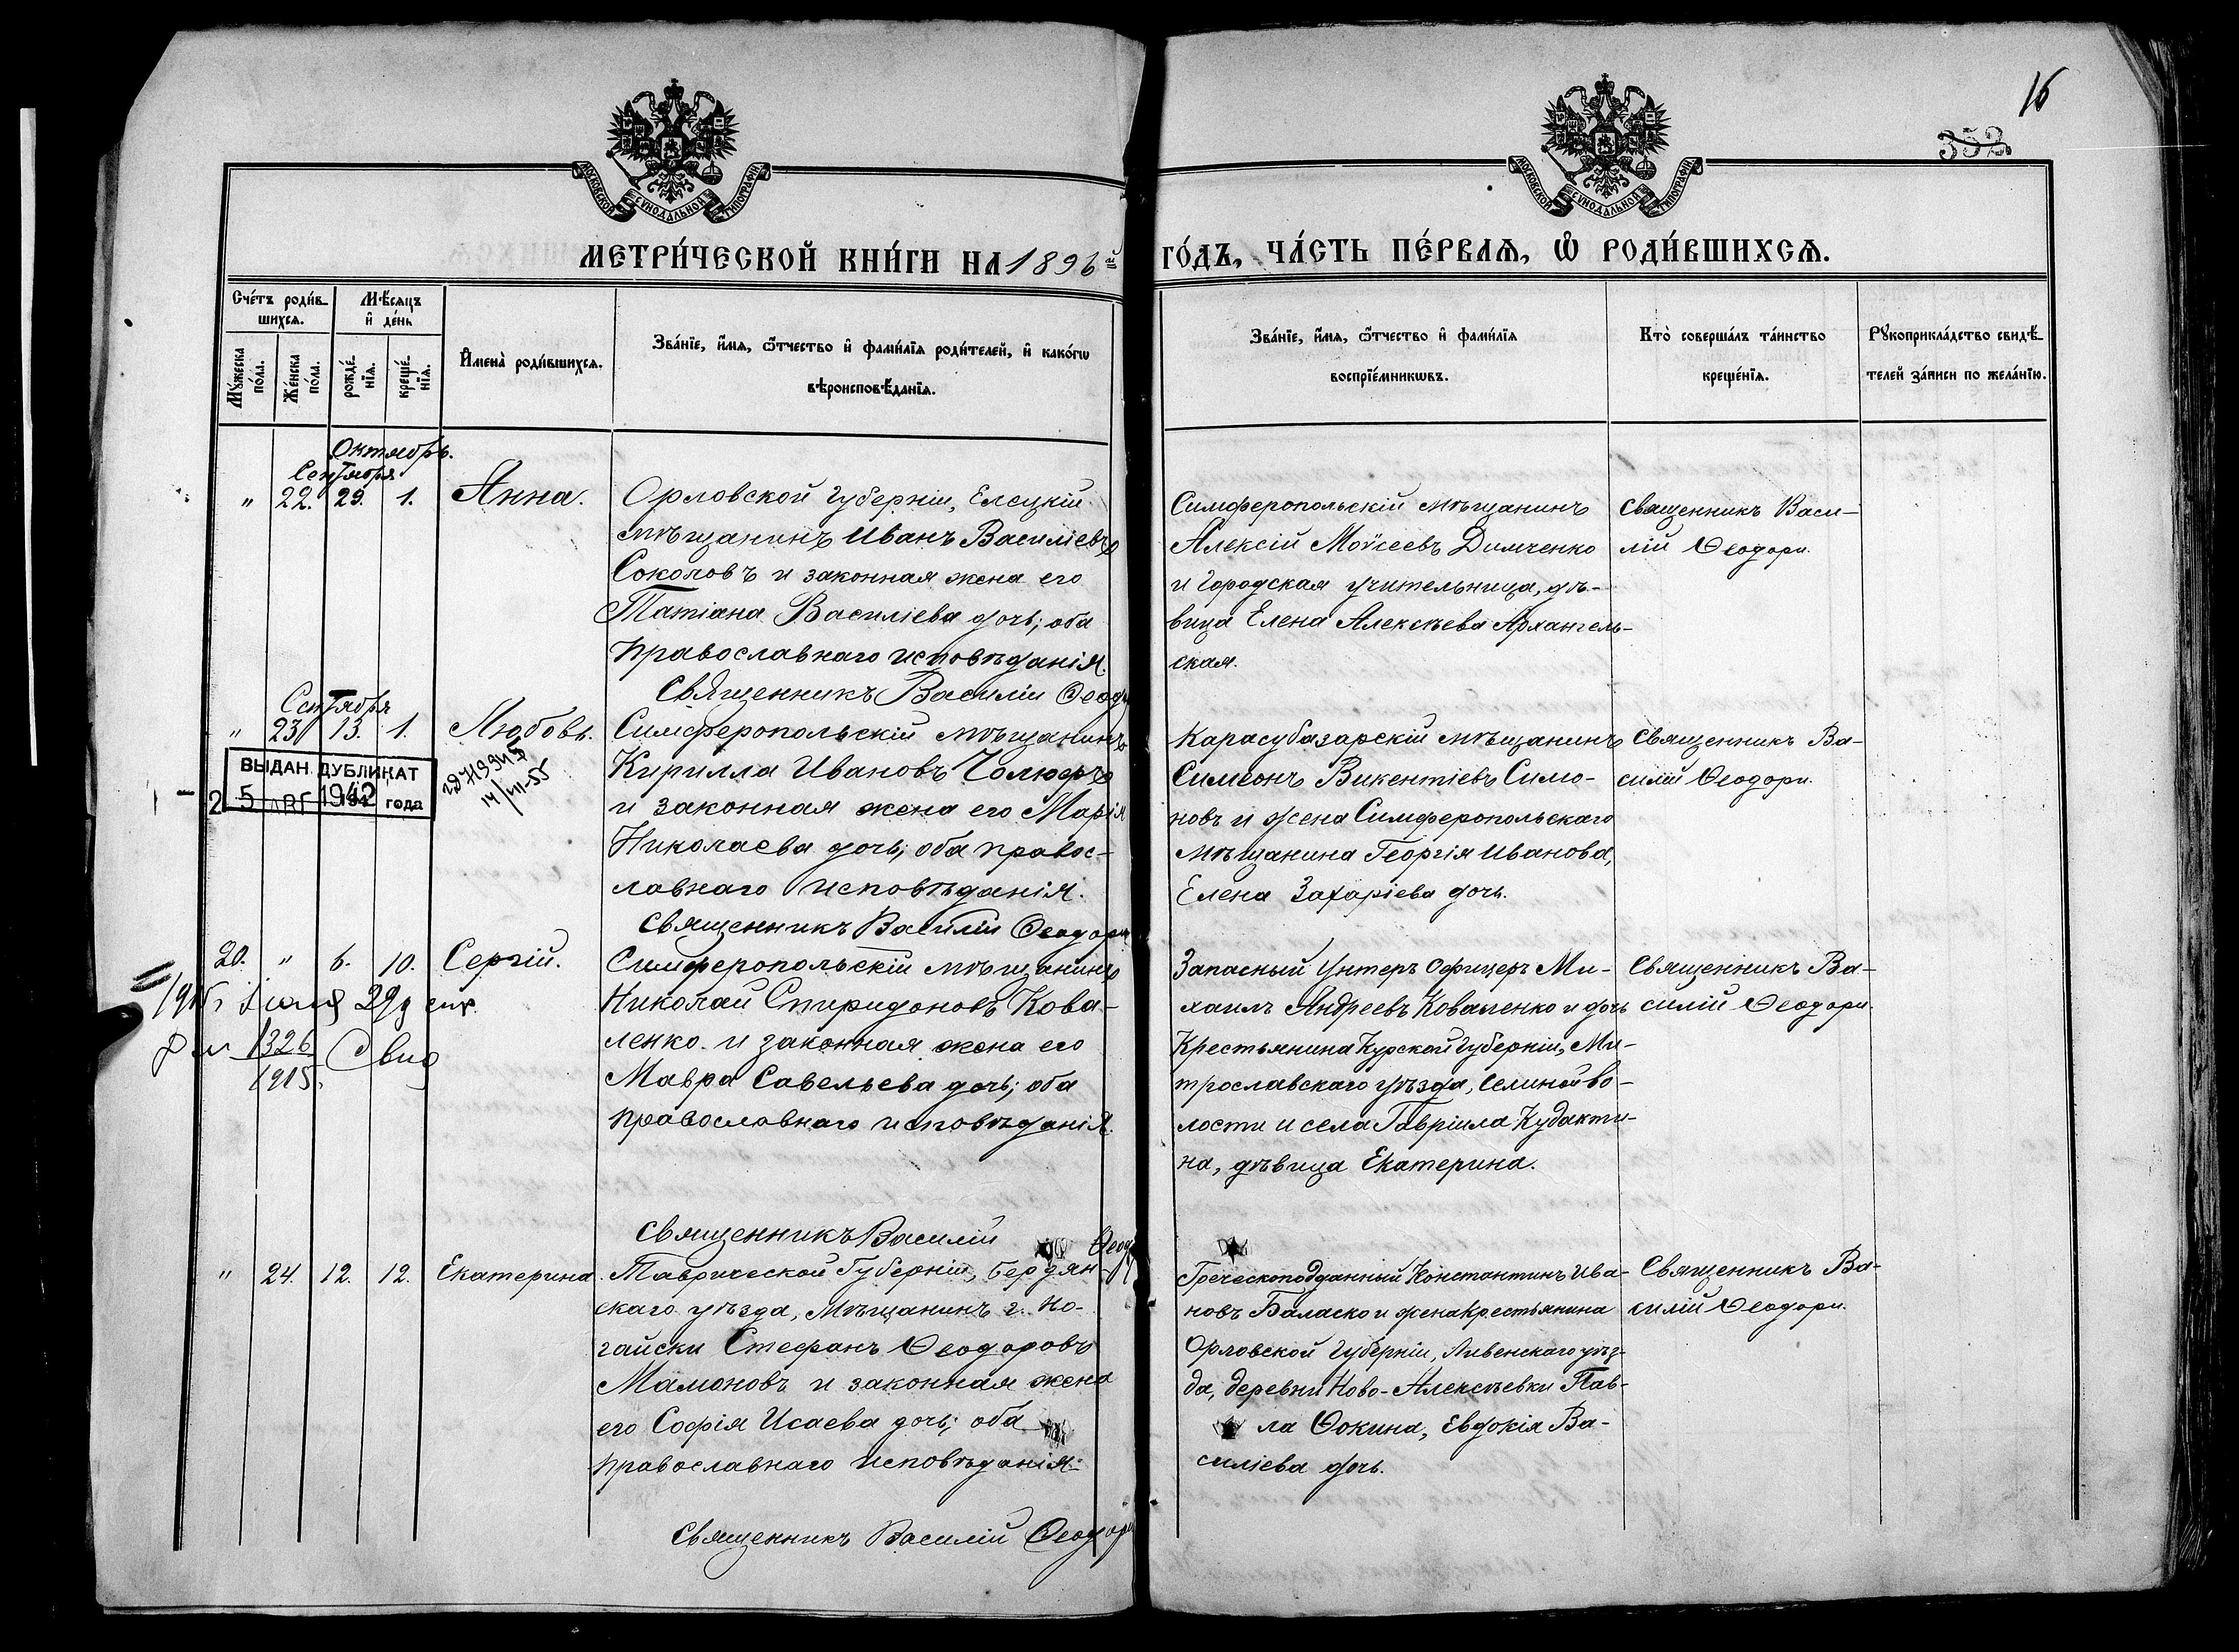 16
352
МОСКОВСКОЙ СѴНОДАЛЬНОЙ ТИПОГРАФІИ
МОСКОВСКОЙ СѴНОДАЛЬНОЙ ТИПОГРАФІИ
МЕТРИ́ЧЕСКОЙ КНИ́ГИ НА 1896й
ГО́ДЪ, ЧА́СТЬ ПЕ́РВАѦ, Ѡ҆ РОДИ́ВШИХСѦ.
Сче́тъ роди́в-
шихсѧ.
Мѣ́сѧцъ
и҆ де́нь
Мꙋ́жеска
по́ла.
Же́нска
по́ла.
рожде́-
нїѧ.
креще́-
нїѧ.
И҆мена̀ роди́вшихсѧ.
Зва́нїе, и҆́мѧ, ѻ҆́тчество и҆ фами́лїѧ роди́телей, и҆ како́гѡ
вѣроисповѣ́данїѧ.
Зва́нїе, и҆́мѧ, ѻ҆́тчество и҆ фами́лїѧ
воспрїе́мникѡвъ.
Кто̀ соверша́лъ та́инство
креще́нїѧ.
Рꙋкоприкла́дство свидѣ́-
телей за́писи по жела́нїю.
Октябрь.
Сентября
" 22. 29. 1. Анна.
Орловской губерніи, Елецкій
мѣщанинъ Иванъ Василіевъ
Соколовъ и законная жена его
Татіана Василіева дочь; оба
православнаго исповѣданія.
Священникъ Василій Ѳеодо
Симферопольскій мѣщанинъ
Алексій Моѵсеевъ Димченко
и городская учительница, дѣ-
вица Елена Алексѣева Архангель-
ская.
Священникъ Васи-
лій Ѳеодори.
Сентября
" 23 13. 1. Любовь.
ВЫДАН ДУБЛИКАТ
25 АВГ 1942 года
14/VII-55
Симферопольскій мѣщанинъ
Кирилла Ивановъ Чолюфъ
и законная жена его Марія
Николаева дочь; оба правос-
лавнаго исповѣданія.
Священникъ Василій Ѳеодори
Карасубазарскій мѣщанинъ
Симеонъ Викентіевъ Симо-
новъ и жена Симферопольскаго
мѣщанина Георгія Иванова,
Елена Захаріева дочь.
Священникъ Ва-
силій Ѳеодори.
20. " 6. 10. Сергій.
1326
1915
Симферопольскій мѣщанинъ
Николай Спиридоновъ Кова-
ленко и законная жена его
Мавра Савельева дочь; оба
православнаго исповѣданія.
Священникъ Василій Ѳеод
Запасный Унтеръ Офицеръ Ми-
хаилъ Андреевъ Коваленко и дочь
Крестьянина Курской губерніи, Ми-
трославскаго уѣзда, Селиной во-
лости и села Гавріила Кудакти-
на, дѣвица Екатерина.
Священникъ Ва-
силій Ѳеодори.
" 24. 12. 12. Екатерина.
Таврической Губерніи, Бердян-
скаго уѣзда, мѣщанинъ г. Но-
гайски Стефанъ Ѳеодоровъ
Мамоновъ и законная жена
его Софія Исаева дочь; оба
православнаго исповѣданія.
Священникъ Василій Ѳеодори
Греческоподданный Константинъ Ива-
новъ Баласко и жена Крестьянина
Орловской губерніи, Ливенскаго уѣз-
да, деревни Ново-Алексѣевки Пав-
ла Ѳокина, Евдокія Ва-
силіева дочь.
Священникъ Ва-
силій Ѳеодори.